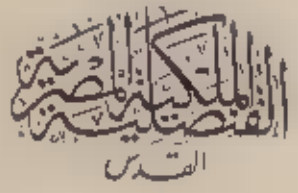 القنصلية الملكية المصرية
القدس